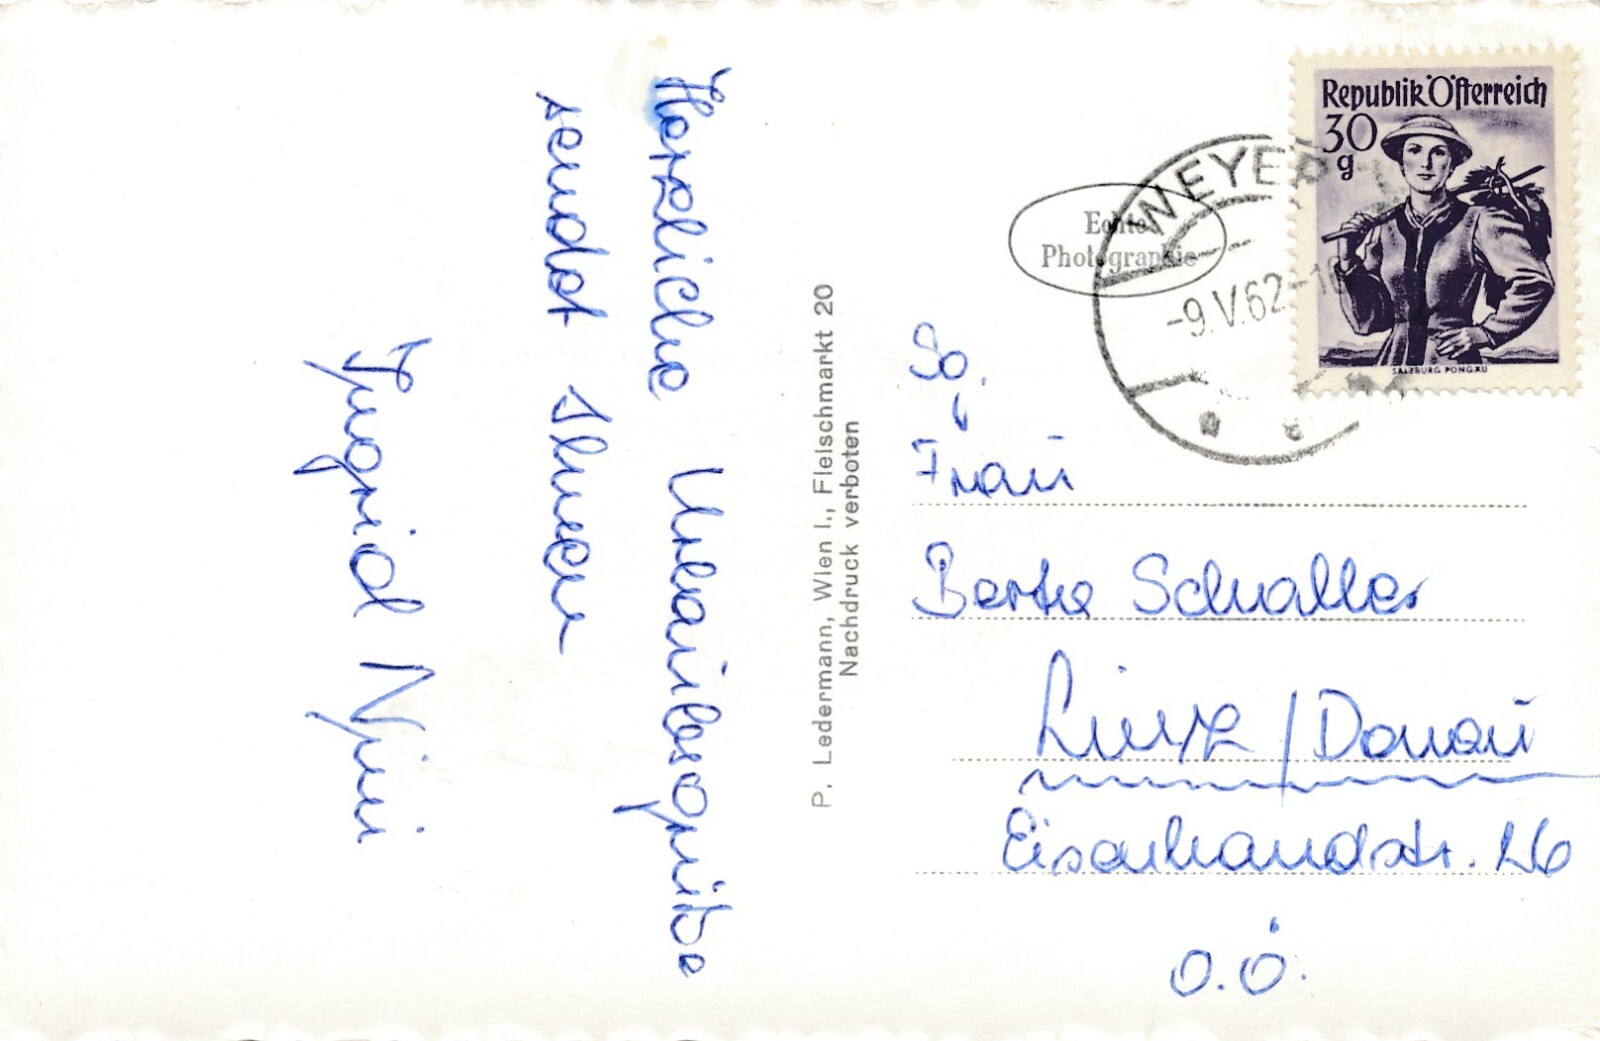 Herzliche Urlaubsgrüße
sendet Ihnen
Ingrid Nini
P. Ledermann, Wien I., Fleischmarkt 20
Nachdruck verboten
Echte
Photographie
WEYER
-9.V.62-18
Republik Österreich
30
g
SALZBURG PONGAU
Frau
Berta Schaller
Linz / Donau
Eisenhandstr. 26
O.Ö.